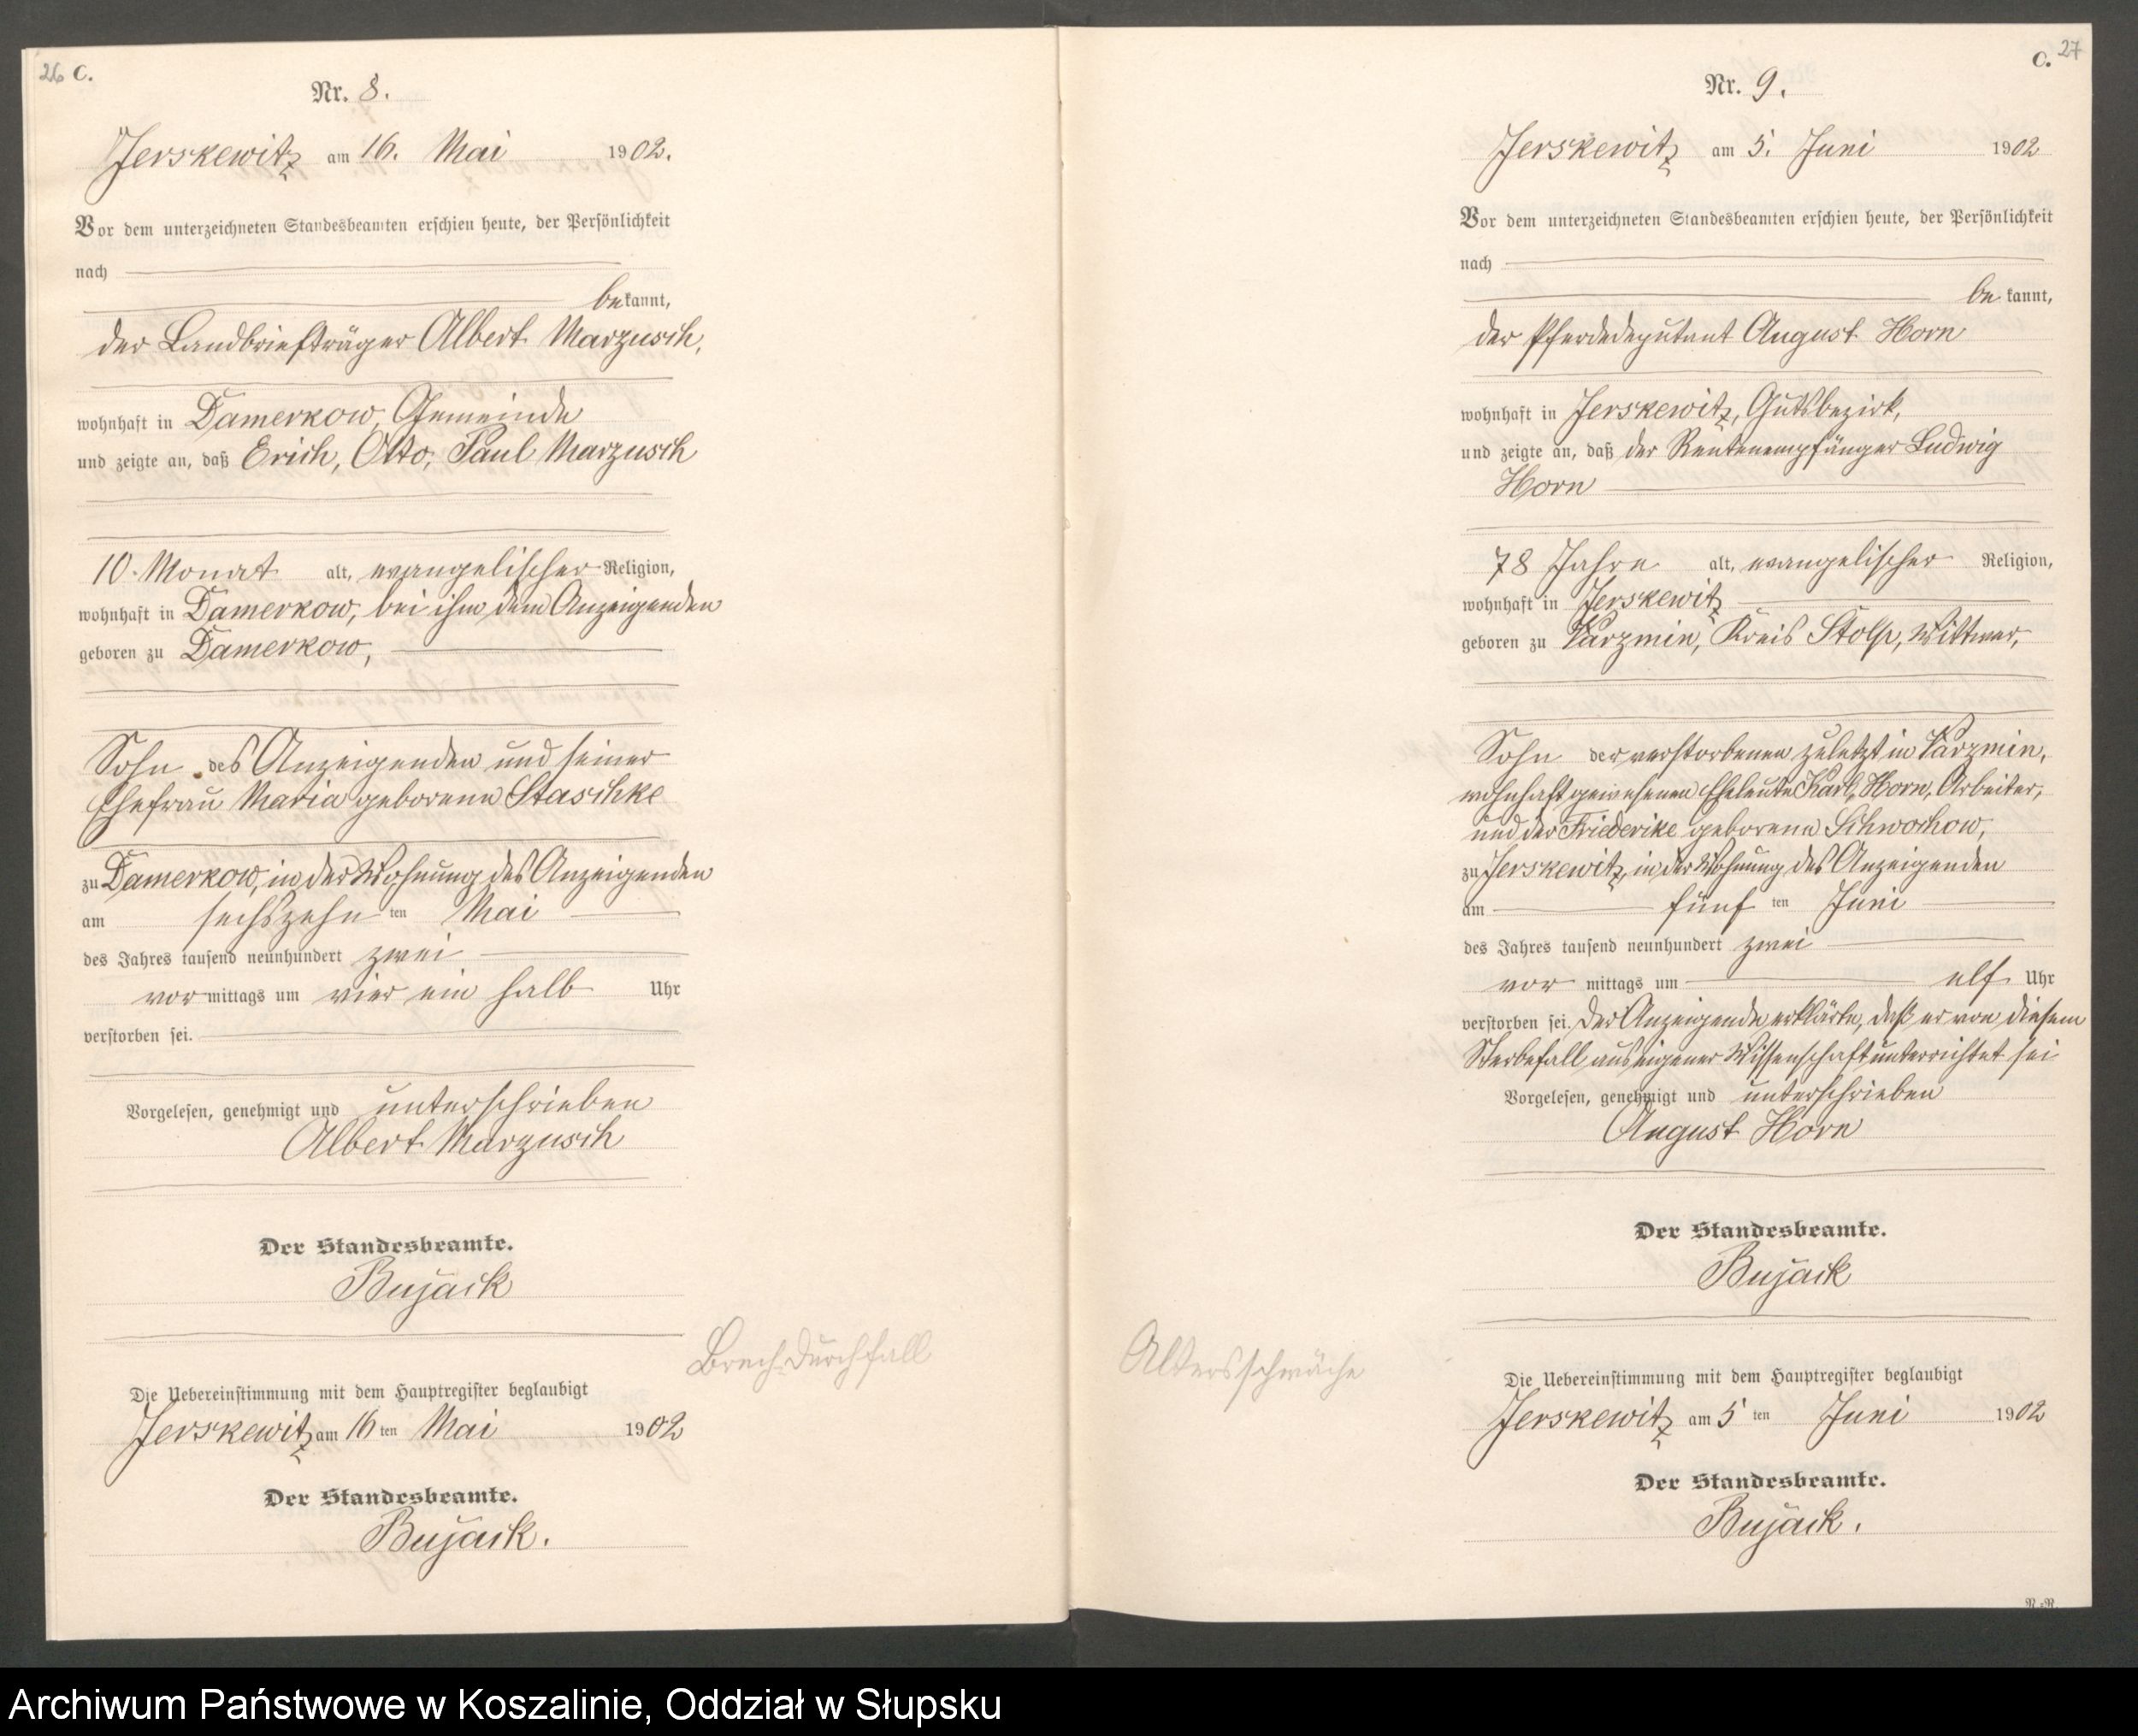 26 C.
Nr. 8.
Jerskewitz am 16. Mai 1902.
Vor dem unterzeichneten Standesbeamten erschien heute, der Persönlichkeit
nach
bekannt,
der Landbriefträger Albert Marzusch,
wohnhaft in Damerkow, Gemeinde
und zeigte an, daß Erich, Otto, Paul Marzusch
10. Monat alt, evangelischer Religion,
wohnhaft in Damerkow, bei ihm dem Anzeigenden
geboren zu Damerkow,
Sohn des Anzeigenden und seiner
Ehefrau Maria geborene Staschke
zu Damerkow, in der Wohnung des Anzeigenden
am sechszehn ten Mai
des Jahres tausend neunhundert zwei
vor mittags um vier ein halb Uhr
verstorben sei.
Vorgelesen, genehmigt und unterschrieben
Albert Marzusch
Der Standesbeamte.
Bujack
Brechdurchfall
Die Uebereinstimmung mit dem Hauptregister beglaubigt
Jerskewitz am 16 ten Mai 1902
Der Standesbeamte.
Bujack.
C. 27
Nr. 9.
Jerskewitz am 5. Juni 1902
Vor dem unterzeichneten Standesbeamten erschien heute, der Persönlichkeit
nach
be kannt,
der Pferdedeputant August Horn
wohnhaft in Jerskewitz, Gutsbezirk,
und zeigte an, daß der Rentenempfänger Ludwig
Horn
78 Jahre alt, evangelischer Religion,
wohnhaft in Jerskewitz
geboren zu Varzmin, Kreis Stolp, Wittwer,
Sohn der verstorbenen zuletzt in Varzmin,
wohnhaft gewesenen Eheleute Karl, Horn, Arbeiter,
und der Friederike geborene Schwochow,
zu Jerskewitz, in der Wohnung des Anzeigenden
am fünf ten Juni
des Jahres tausend neunhundert zwei
vor mittags um elf Uhr
verstorben sei. Der Anzeigende erklärte, daß er von diesem
Sterbefall aus eigener Wissenschaft unterrichtet sei
Vorgelesen, genehmigt und unterschrieben
August Horn
Der Standesbeamte.
Bujack
Altersschwäche
Die Uebereinstimmung mit dem Hauptregister beglaubigt
Jerskewitz am 5 ten Juni 1902
Der Standesbeamte.
Bujack.
N.-R.
Archiwum Państwowe w Koszalinie, Oddział w Słupsku